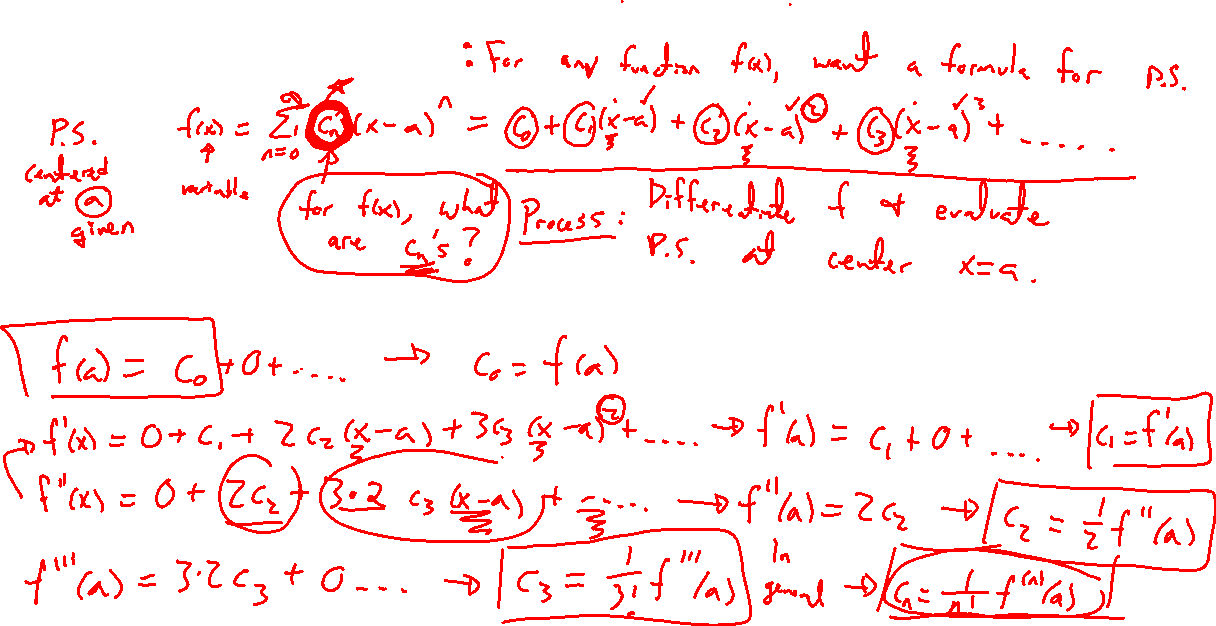 : For any function f(x), want a formula for P.S.
P.S. centered at a given
f(x) = ∑_{n=0}^{∞} cₙ(x-a)ⁿ = c₀ + c₁(x-a) + c₂(x-a)² + c₃(x-a)³ + ......
variable
for f(x), what are cₙ's?
Process: Differentiate f & evaluate
P.S. at center x=a.
f(a) = c₀ + 0 + .... → c₀ = f(a)
f'(x) = 0 + c₁ + 2c₂(x-a) + 3c₃(x-a)² + .... → f'(a) = c₁ + 0 + .... → c₁ = f'(a)
f''(x) = 0 + 2c₂ + 3·2 c₃(x-a) + ..... → f''(a) = 2c₂ → c₂ = 1/2 f''(a)
f'''(a) = 3·2c₃ + 0 ... → c₃ = 1/3! f'''(a) In general → cₙ = 1/n! f⁽ⁿ⁾(a)